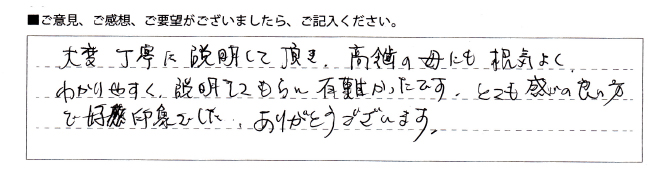 ■ご意見、ご感想、ご要望がございましたら、ご記入ください。
大変丁寧に説明して頂き、高齢の母にも根気よく、
わかりやすく、説明してもらい有難かったです。とても感じの良い方
で好感印象でした。ありがとうございます。